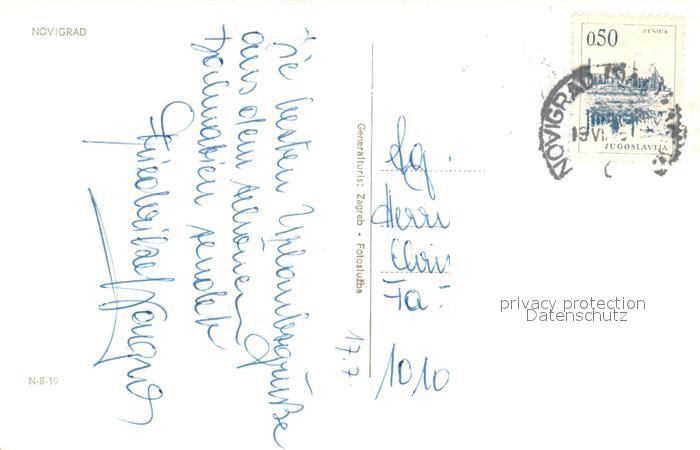 NOVIGRAD
Die besten Urlaubsgrüße
aus dem schönen
Dalmatien sendet
Friederike
17.7.
N-8-19
Generalturist Zagreb - Fotoslužba
Herrn
Fa.
1010
ZENICA
0.50
JUGOSLAVIJA
NOVIGRAD
privacy protection
Datenschutz